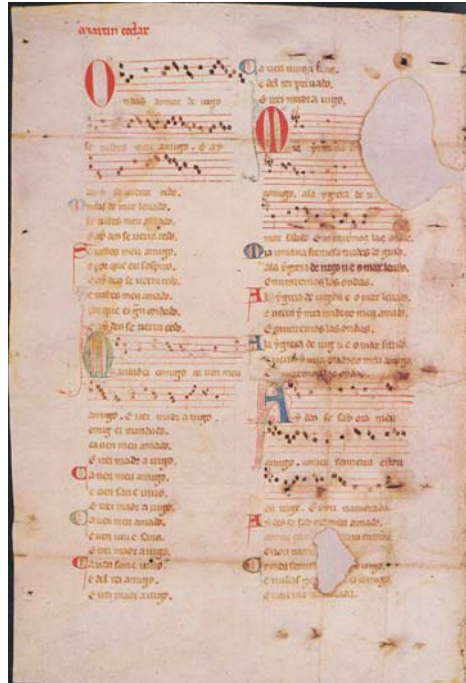 martin codax
Ondas do mar de uigo
se uistes meu amigo. E ay
deus se uerra cedo.
Ondas do mar leuado.
se uistes meu amado.
E ay deus se uerra cedo.
Se uistes meu amigo.
o por que eu sospiro.
E ay deus se uerra cedo.
Se uistes meu amado.
por que ei gran coidado.
E ay deus se uerra cedo.
Mandad ei comigo ca uen meu
amigo. E irei madr a uigo.
comig ei mandado.
ca uen meu amado.
E irei madr a uigo.
Ca uen meu amigo.
e uen san e uiuo.
E irei madr a uigo.
Ca uen meu amado.
e uen uiu e sano.
E irei madr a uigo.
Ca uen san e uiuo.
e del rei amigo.
E irei madr a uigo.
Ca uen uiuo e sano.
e del rei priuado.
E irei madr a uigo.
Mia yrmana
comigo. a la ygreia de
mar salido. E miraremos las ondas.
Mia irmana fremosa treides de grado.
a la ygreia de uigo u e o mar leuado.
E miraremos las ondas.
A la ygreia de uigo u e o mar leuado.
e uerra y mia madre o meu amado.
E miraremos las ondas.
A la ygreia de uig u e o mar salido.
e uerra y mia madre o meu amigo.
E miraremos las ondas.
Ay deus se sab ora meu
amigo. com eu senneira estou
en uigo. E uou namorada.
Ay deus se sab ora meu amado.
E uou